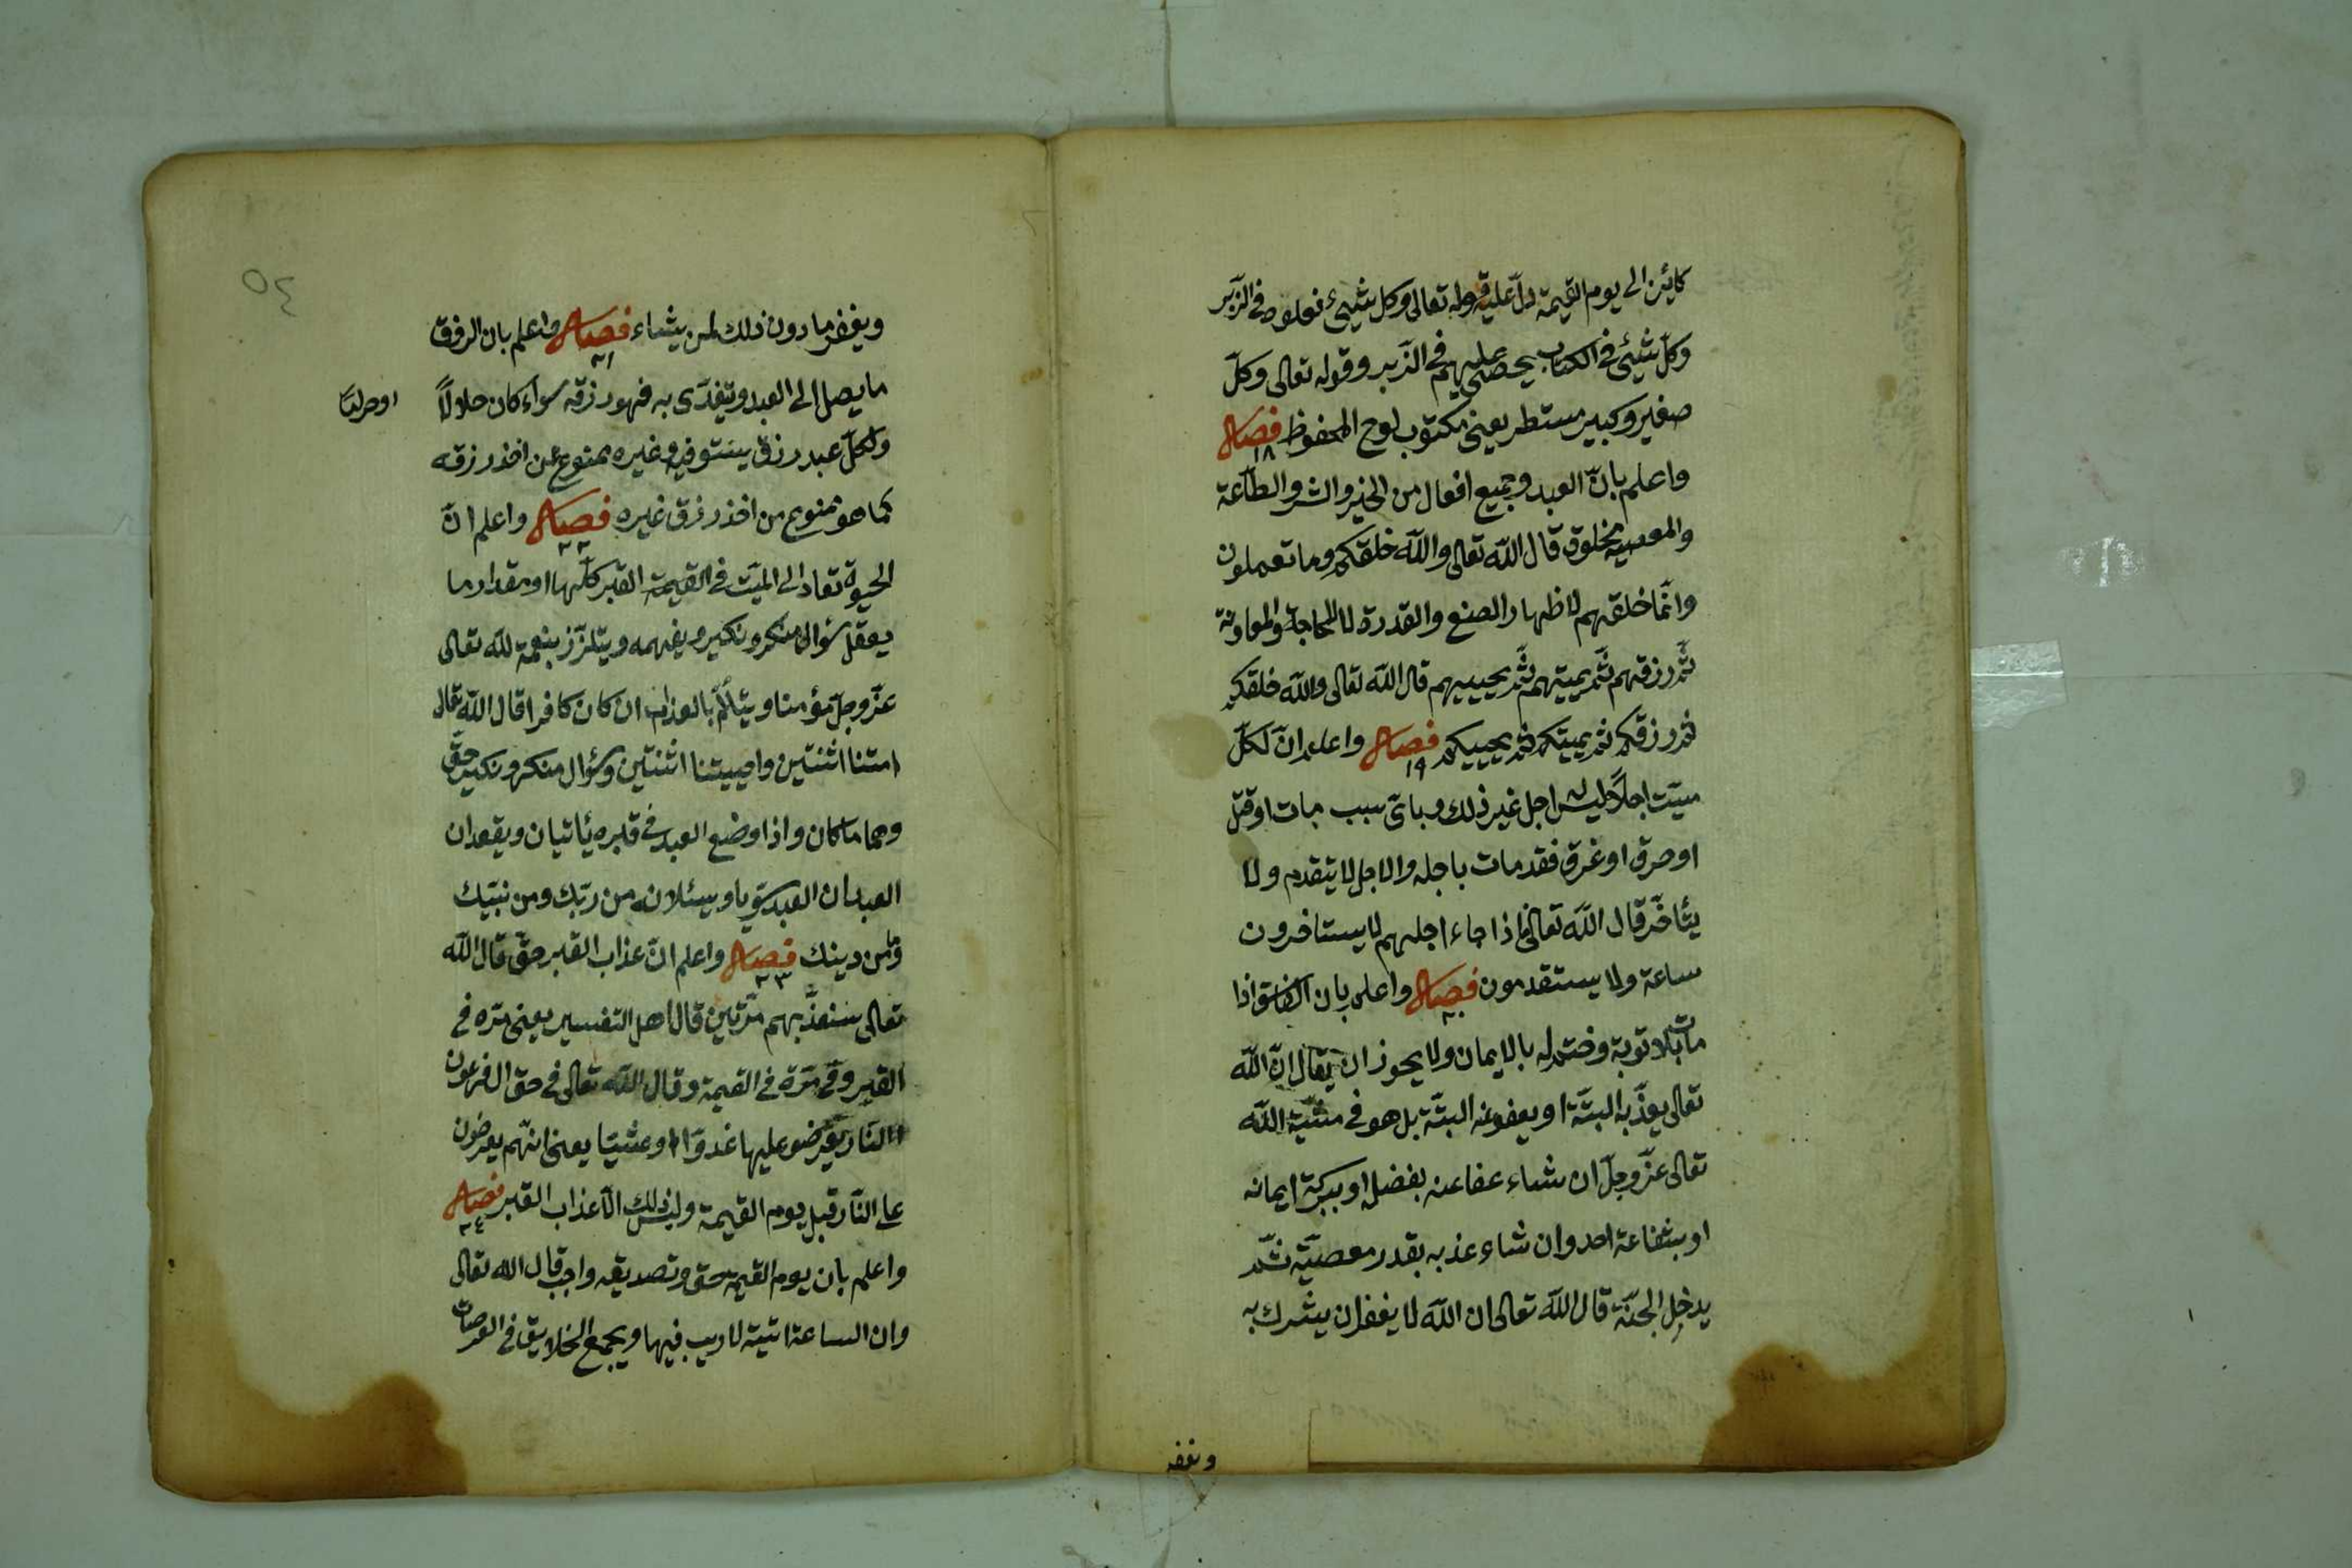 كائن الى يوم القيمة دلّ عليه قوله تعالى وكل شيىء فعلوه فى الزّبر
وكلّ شيئ فى الكتاب يحصى عليهم فى الزّبر وقوله تعالى وكلّ
صغير وكبير مستطر يعنى مكتوب لوح المحفوظ فصل
١٨
واعلم بانّ العبد وجميع افعال من الخير والشر والطّاعة
والمعصية مخلوق قال اللّه تعالى واللّه خلقكم وما تعملون
وانّما خلقهم لاظهار الصنع والقدرة لا للحاجة والمعاونة
ثمّ رزقهم ثمّ يميتهم ثمّ يحييهم قال اللّه تعالى واللّه خلقكم
ثم رزقكم ثم يميتكم ثم يحييكم فصل واعلم انّ لكلّ
١٩
ميّت اجلاً ليس له اجل غير ذلك وباىّ سبب مات او قتل
او حرق او غرق فقد مات باجله والاجل لا يتقدم ولا
يتأخّر قال اللّه تعالى فاذا جاء اجلهم لا يستاخرون
ساعة ولا يستقدمون فصل واعلم بان الفاسق اذا
٢٠
مات بلا توبة وختم له بالايمان ولا يجوز ان يقال انّ اللّه
تعالى يعذّبه البتّة او يعفو عنه البتّة بل هو فى مشيّة اللّه
تعالى عزّ وجلّ ان شاء عفا عنه بفضل او ببركة ايمانه
او بشفاعة احد وان شاء عذبه بقدر معصيّة ثمّ
يدخل الجنّة قال اللّه تعالى ان اللّه لا يغفر ان يشرك به
ويغفر
٥٤
ويغفر ما دون ذلك لمن يشاء فصل واعلم بان الرزق
٢١
ما يصل الى العبد ويتغدّى به فهو رزقه سواء كان حلالاً
او حراما
ولكلّ عبد رزق يستوفيه وغيره ممنوع عن اخذ رزقه
كما هو ممنوع من اخذ رزق غيره فصل واعلم انّ
٢٢
الحيوة تعاد الى الميّت فى القيمة القبر كلّها او مقدار ما
يعقل سؤال منكر ونكير ويفهمه ويتلزّز بنعمة للّه تعالى
عزّ وجلّ مؤمنا ويتألّم بالعذاب ان كان كافرا قال اللّه تعالى
امتنا اثنتين واحييتنا اثنتين وسؤال منكر ونكير حقّ
وهما ملكان واذا وضع العبد فى قبره يأتيان ويقعدان
العبدان العبد سويّا ويسئلانه من ربّك ومن نبيّك
وما من دينك فصل واعلم انّ عذاب القبر حقّ قال اللّه
٢٣
تعالى سنعذّبهم مرّتين قال اهل التفسير يعنى مرّه فى
القبر وفى مرّة فى القيمة وقال اللّه تعالى فى حق ال فرعون
النّار يعرضو عليها غدوّا وعشيّا يعنى انّهم يعرضون
على النّار قبل يوم القيمة وليس ذلك الّا عذاب القبر فصل
٢٤
واعلم بان يوم القيمة حق وتصديقه واجب قال الله تعالى
وان الساعة اتية لا ريب فيها ويجمع الخلايق فى العرصات